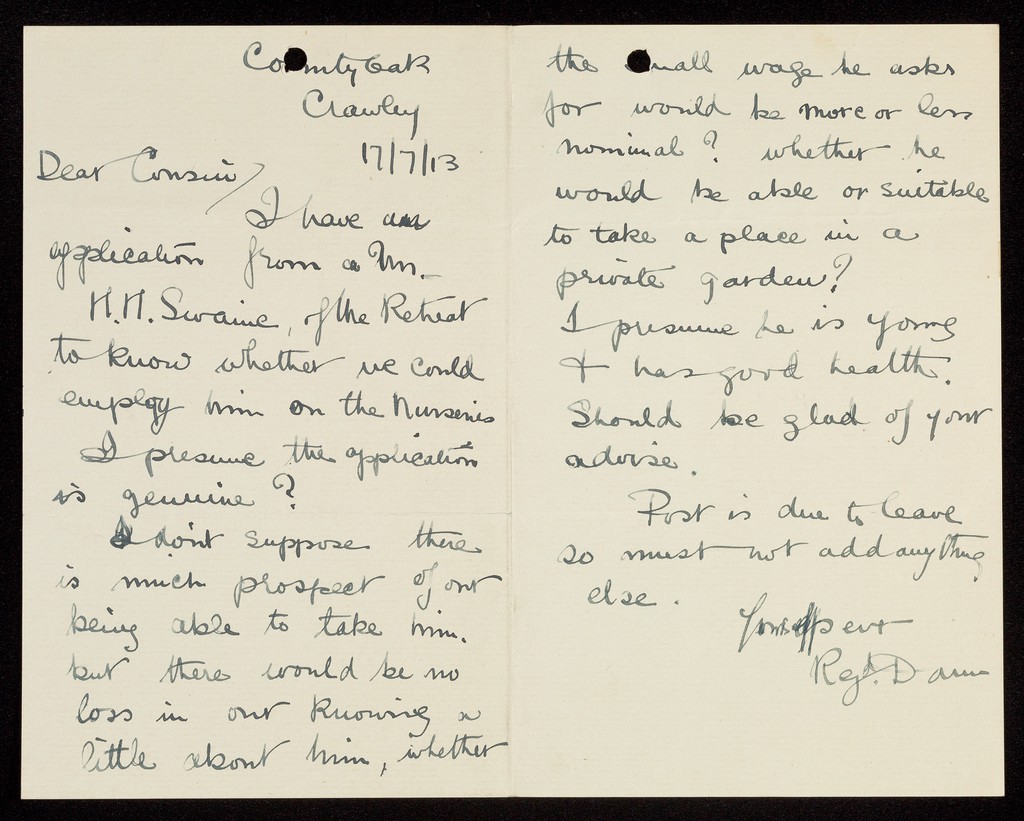 County Oak
Crawley
17/7/13
Dear Cousin/
I have an
application from a Mr.
H.H. Swaine, of the Retreat
to know whether we could
employ him on the Nurseries
I presume the application
is genuine ?
I don't suppose there
is much prospect of our
being able to take him.
but there would be no
loss in our knowing a
little about him, whether
the small wage he asks
for would be more or less
nominal ? whether he
would be able or suitable
to take a place in a
private garden ?
I presume he is young
& has good health.
Should be glad of your
advise.
Post is due to leave
so must not add anything
else.
Yours
Regd.